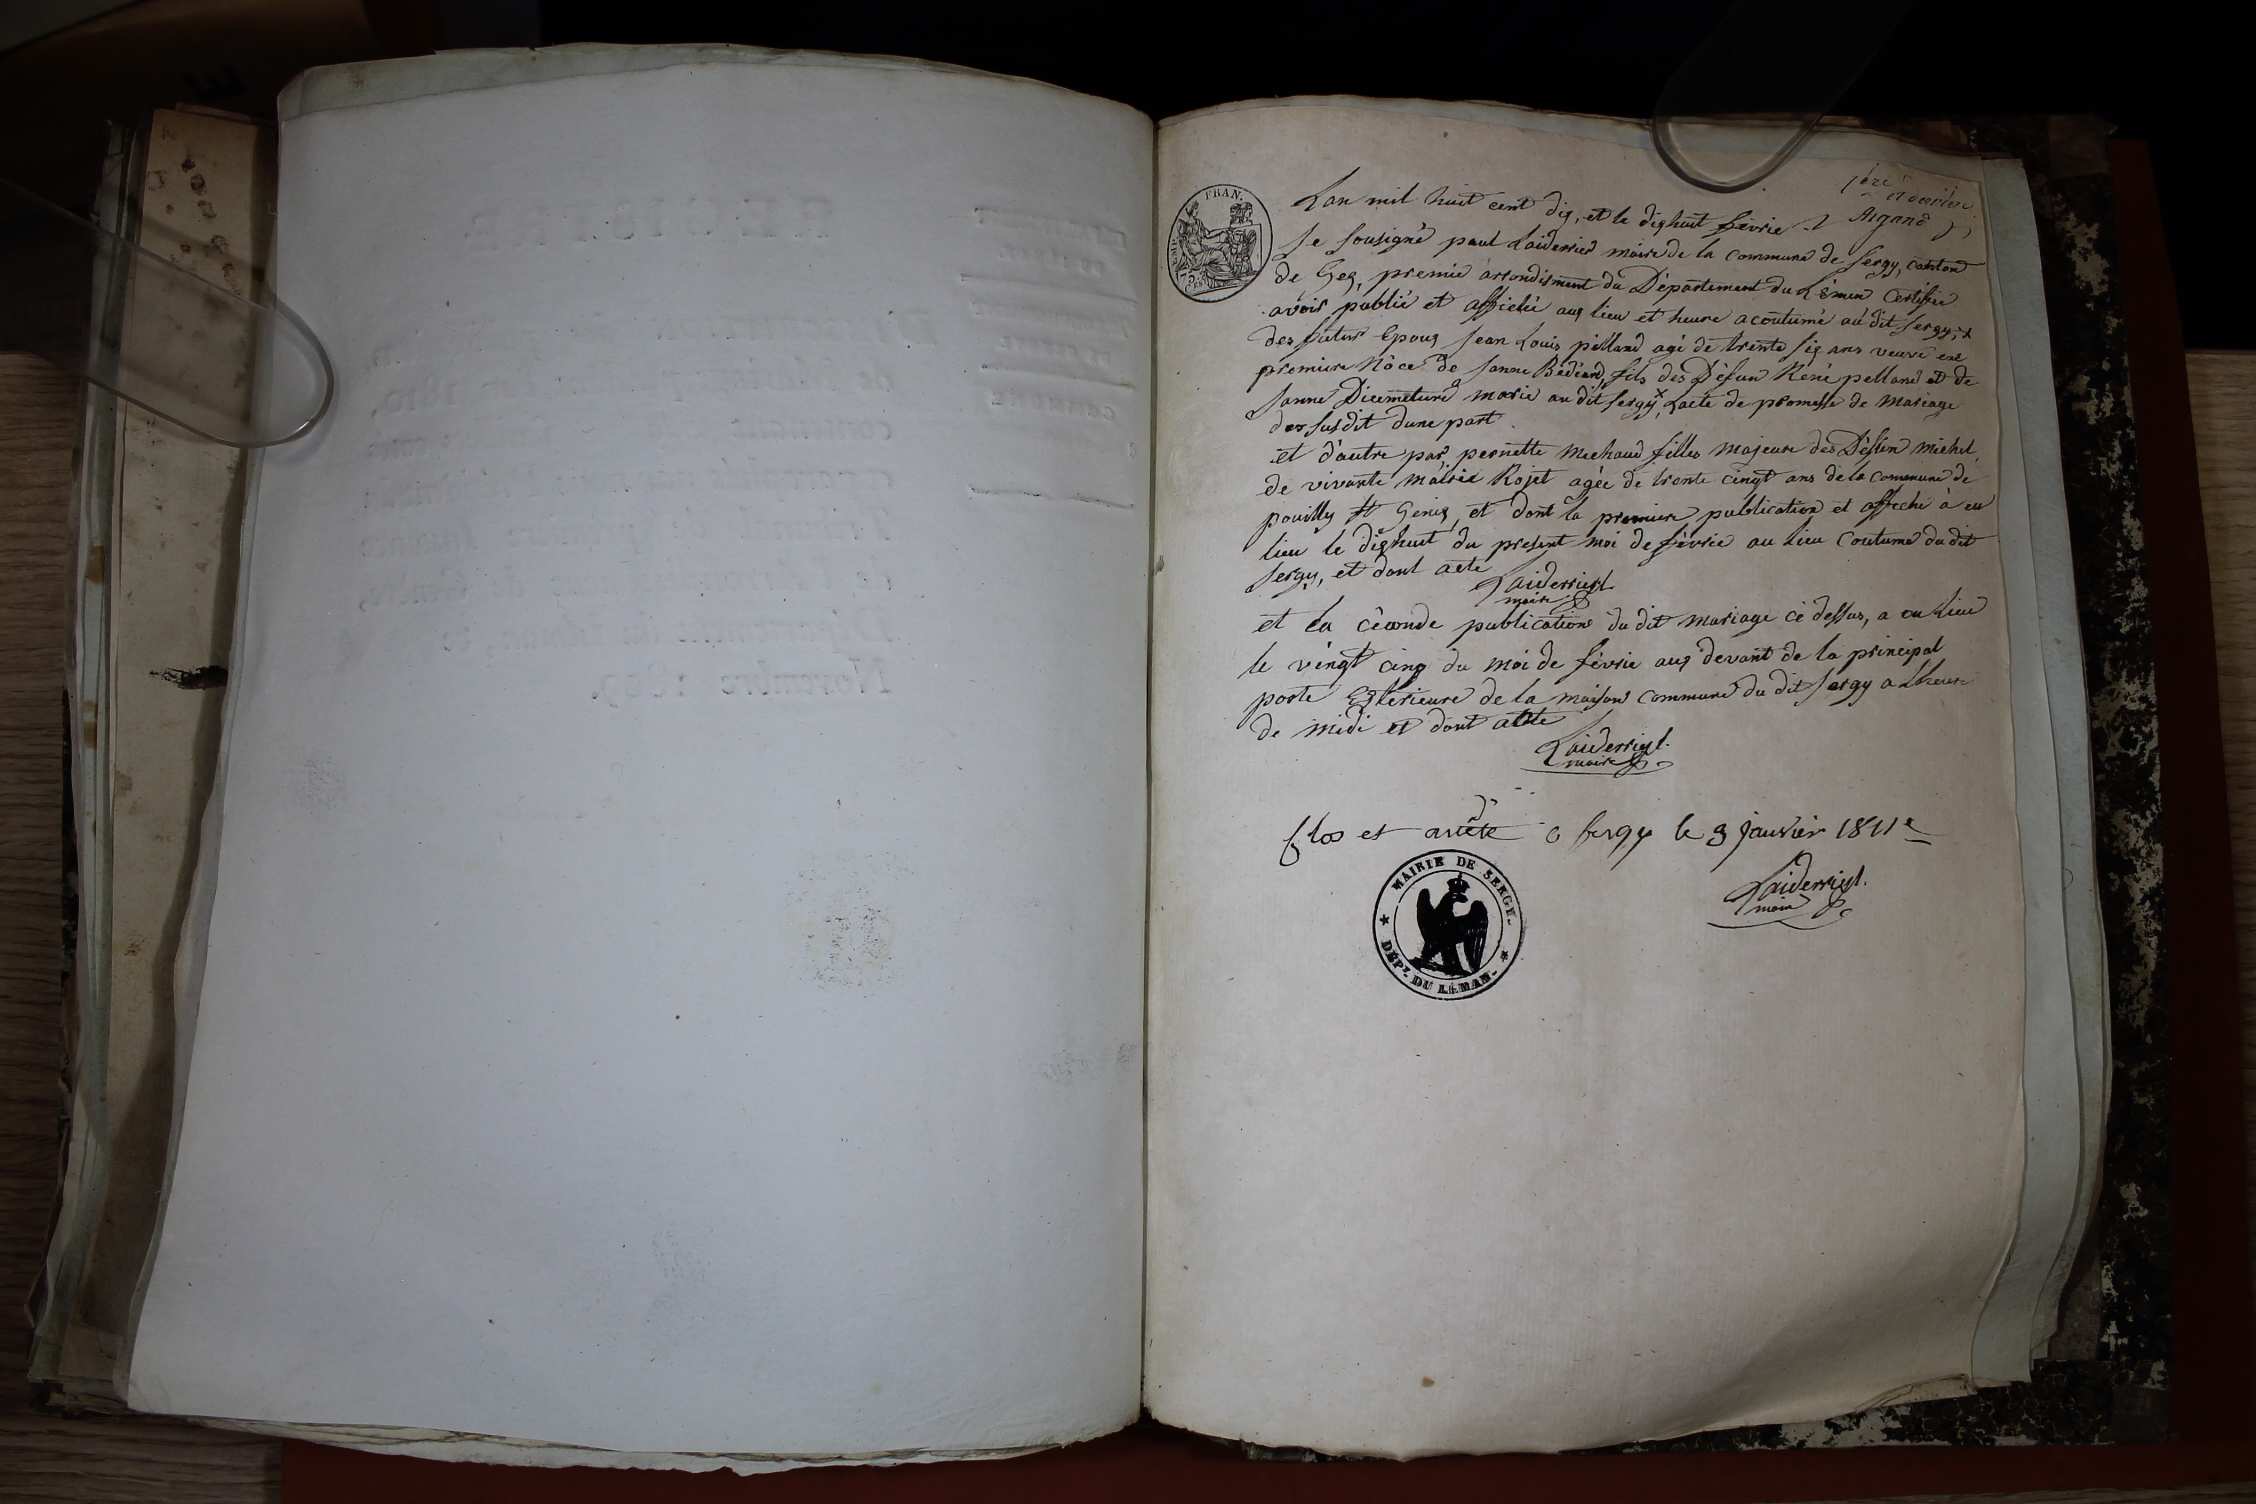 1ère et dernière
Argand
FRAN.
EMP
Lan mil huit cent dix, et le dixhuit février
Je sousigné paul Laiderrier maire de la commune de Sergy, canton
de Gex, premie arrondisment du Département du Léman Certifie
avoir publié et affiché aux lieu et heure acoutumé au dit Sergy, x
des futur Epoux Jean Louis pelland agé de trente six ans veuve ent
premiere Nôce de Janne Bédéand, fils des Défun Réné pelland et de
Janne Dicemeture marié au dit Sergy x Lacte de promesse de Mariage
des Susdit dune part
et d'autre par pernette Michaud filles majeure des Défun Michel,
de vivante Mairie Rojet agée de trente cingt ans de la Commune de
pouilly St Genix, et dont la premiere publication et affiche à eu
lieu le dixhuit du present moi de févrie au Lieu Coutume du dit
Sergy, et dont acte
Laiderrier
maire
et la céconde publication du dit mariage cé dessus, a eu Lieu
le vengt cinq du moi de févrie aux devant de la principal
porte Exterieure de la maison commune du dit Sergy a Lheure
de midi et dont acte
Laiderrier
maire
Clos et arrêté a Sergy le 3 janvier 1811
MAIRIE DE SERGY.
DÉPT. DU LÉMAN.
Laiderrier
maire